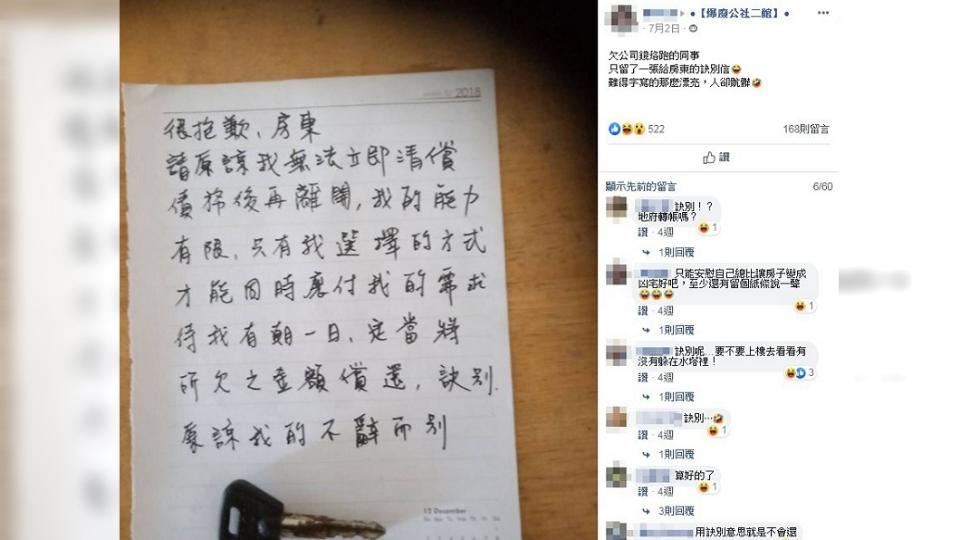 2018
很抱歉、房東
請原諒我無法立即清償
債務後再離開,我的能力
有限,只有我選擇的方式
才能同時應付我的需求
待我有朝一日,定當將
所欠之金額償還,訣別.
原諒我的不辭而別
12 December
●【爆廢公社二館】●
7月2日
欠公司錢烙跑的同事
只留了一張給房東的訣別信
難得字寫的那麼漂亮,人卻骯髒
522
168則留言
讚
顯示先前的留言
6/60
訣別!?
地府轉帳嗎?
1
讚 · 4週
1則回覆
只能安慰自己總比讓房子變成
凶宅好吧,至少還有留個紙條說一聲
1
讚 · 4週
1則回覆
訣別呢...要不要上樓去看看有
沒有躲在水塔裡!
3
讚 · 4週
1則回覆
訣別⋯
1
讚 · 4週
1則回覆
算好的了
1
讚 · 4週
3則回覆
用訣別意思就是不會還